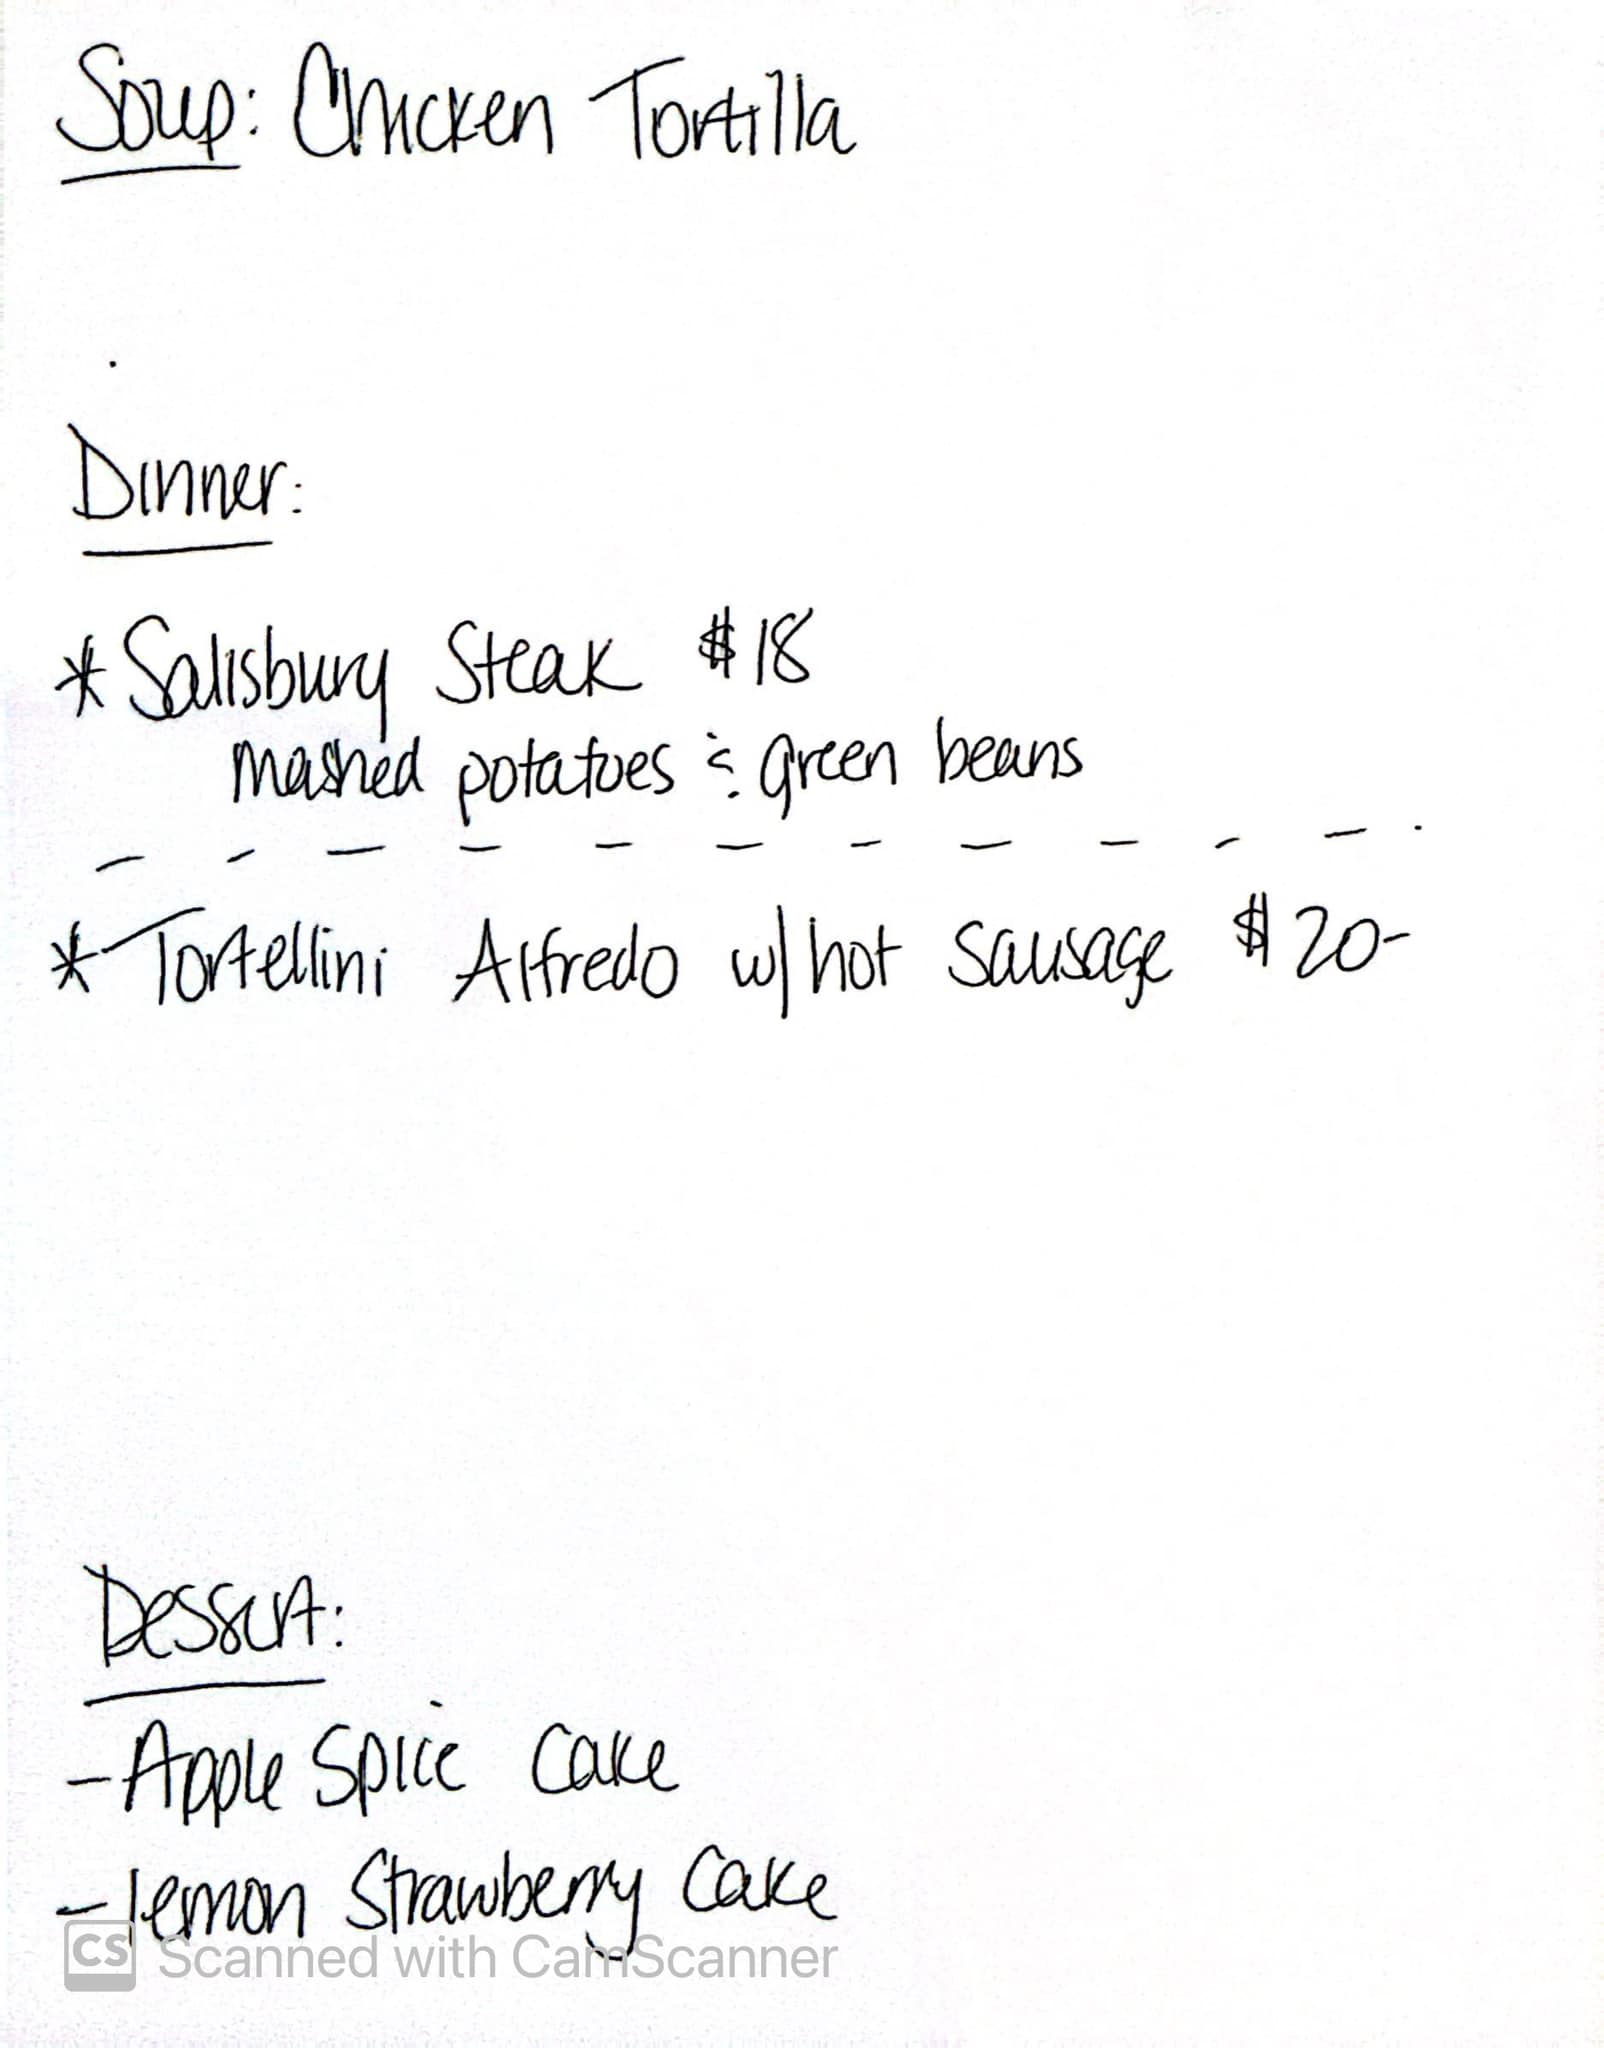 Soup: Chicken Tortilla
Dinner:
* Salisbury Steak $18
mashed potatoes & green beans
* Tortellini Alfredo w/ hot sausage $20-
Dessert:
- Apple Spice Cake
- lemon Strawberry Cake
CS Scanned with CamScanner